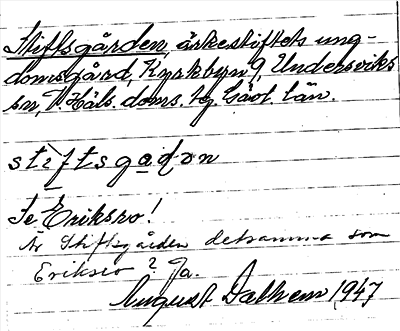 Stiftsgården, ärkestiftets ung-
domsgård, Kyrkbyn 9, Undersviks
sn, V. Häls. doms. tg. Gävl. län.
stiftsgaḍən
Se Eriksro!
Är Stiftsgården detsamma som
Eriksro? Ja.
August Dalhem 1947